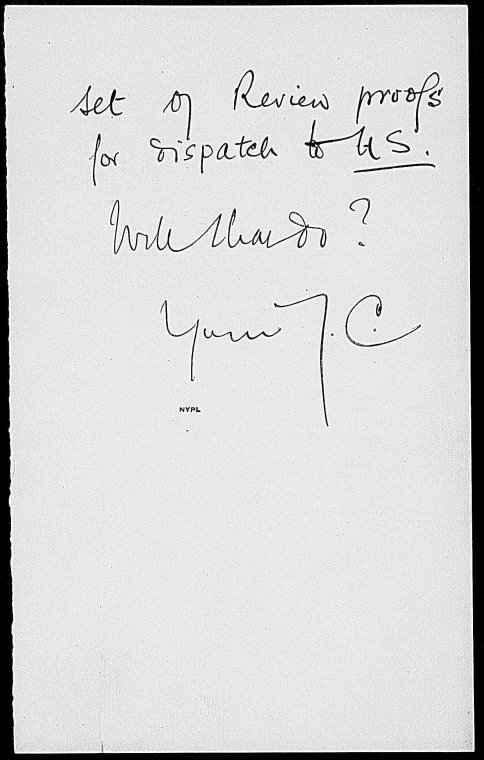 set of Review proofs
for dispatch to US.
Will that do?
Yours J. C.
NYPL